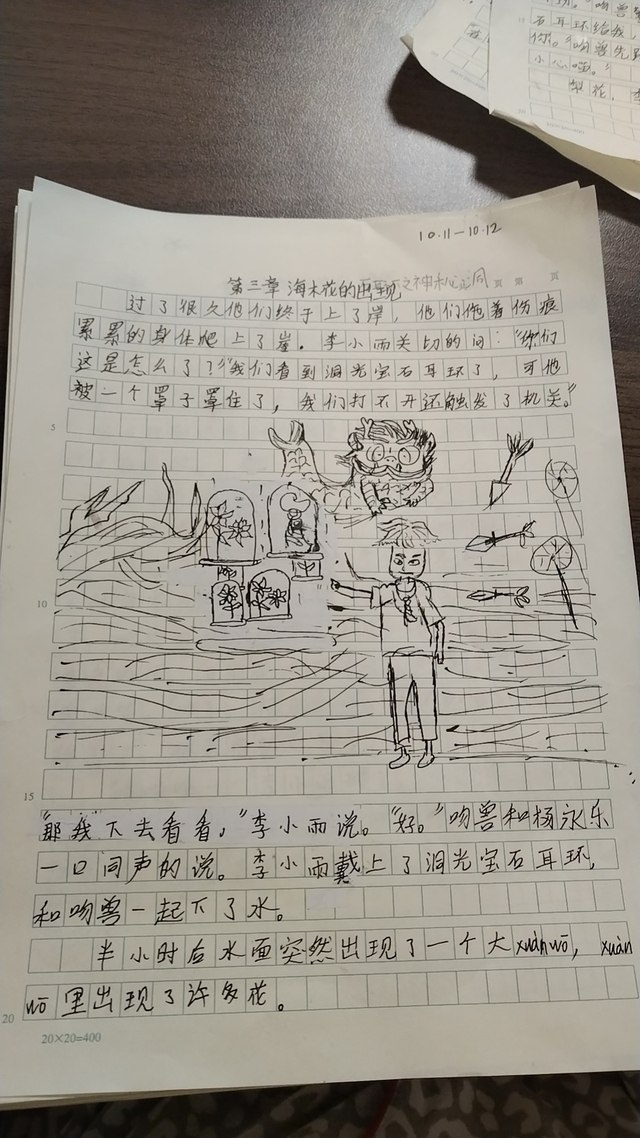 吻兽
石耳环给我,
你。"吻兽先
小心喔。"
梨花,
10.11—10.12
第三章 海木花的出现之神秘洞
过了很久他们终于上了岸,他们拖着伤痕
累累的身体爬上了崖。李小雨关切的问:"你们
这是怎么了?""我们看到洞光宝石耳环了,可他
被一个罩子罩住了,我们打不开还触发了机关。"
5
10
15
"那我下去看看,"李小雨说。"好。"吻兽和杨永乐
一口同声的说。李小雨戴上了洞光宝石耳环,
和吻兽一起下了水。
半小时后水面突然出现了一个大xuánwō,xuán
wō里出现了许多花。
20
20×20=400